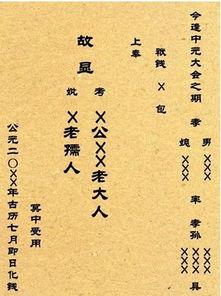 今逢中元大会之期 孝 男 XXX 率 孝孙 XXX 具
媳 XXX
钱 X 包
上奉
故显 考 X公XXX老大人
妣 X老孺人
冥中受用
公元二〇XX年古历七月即日化钱